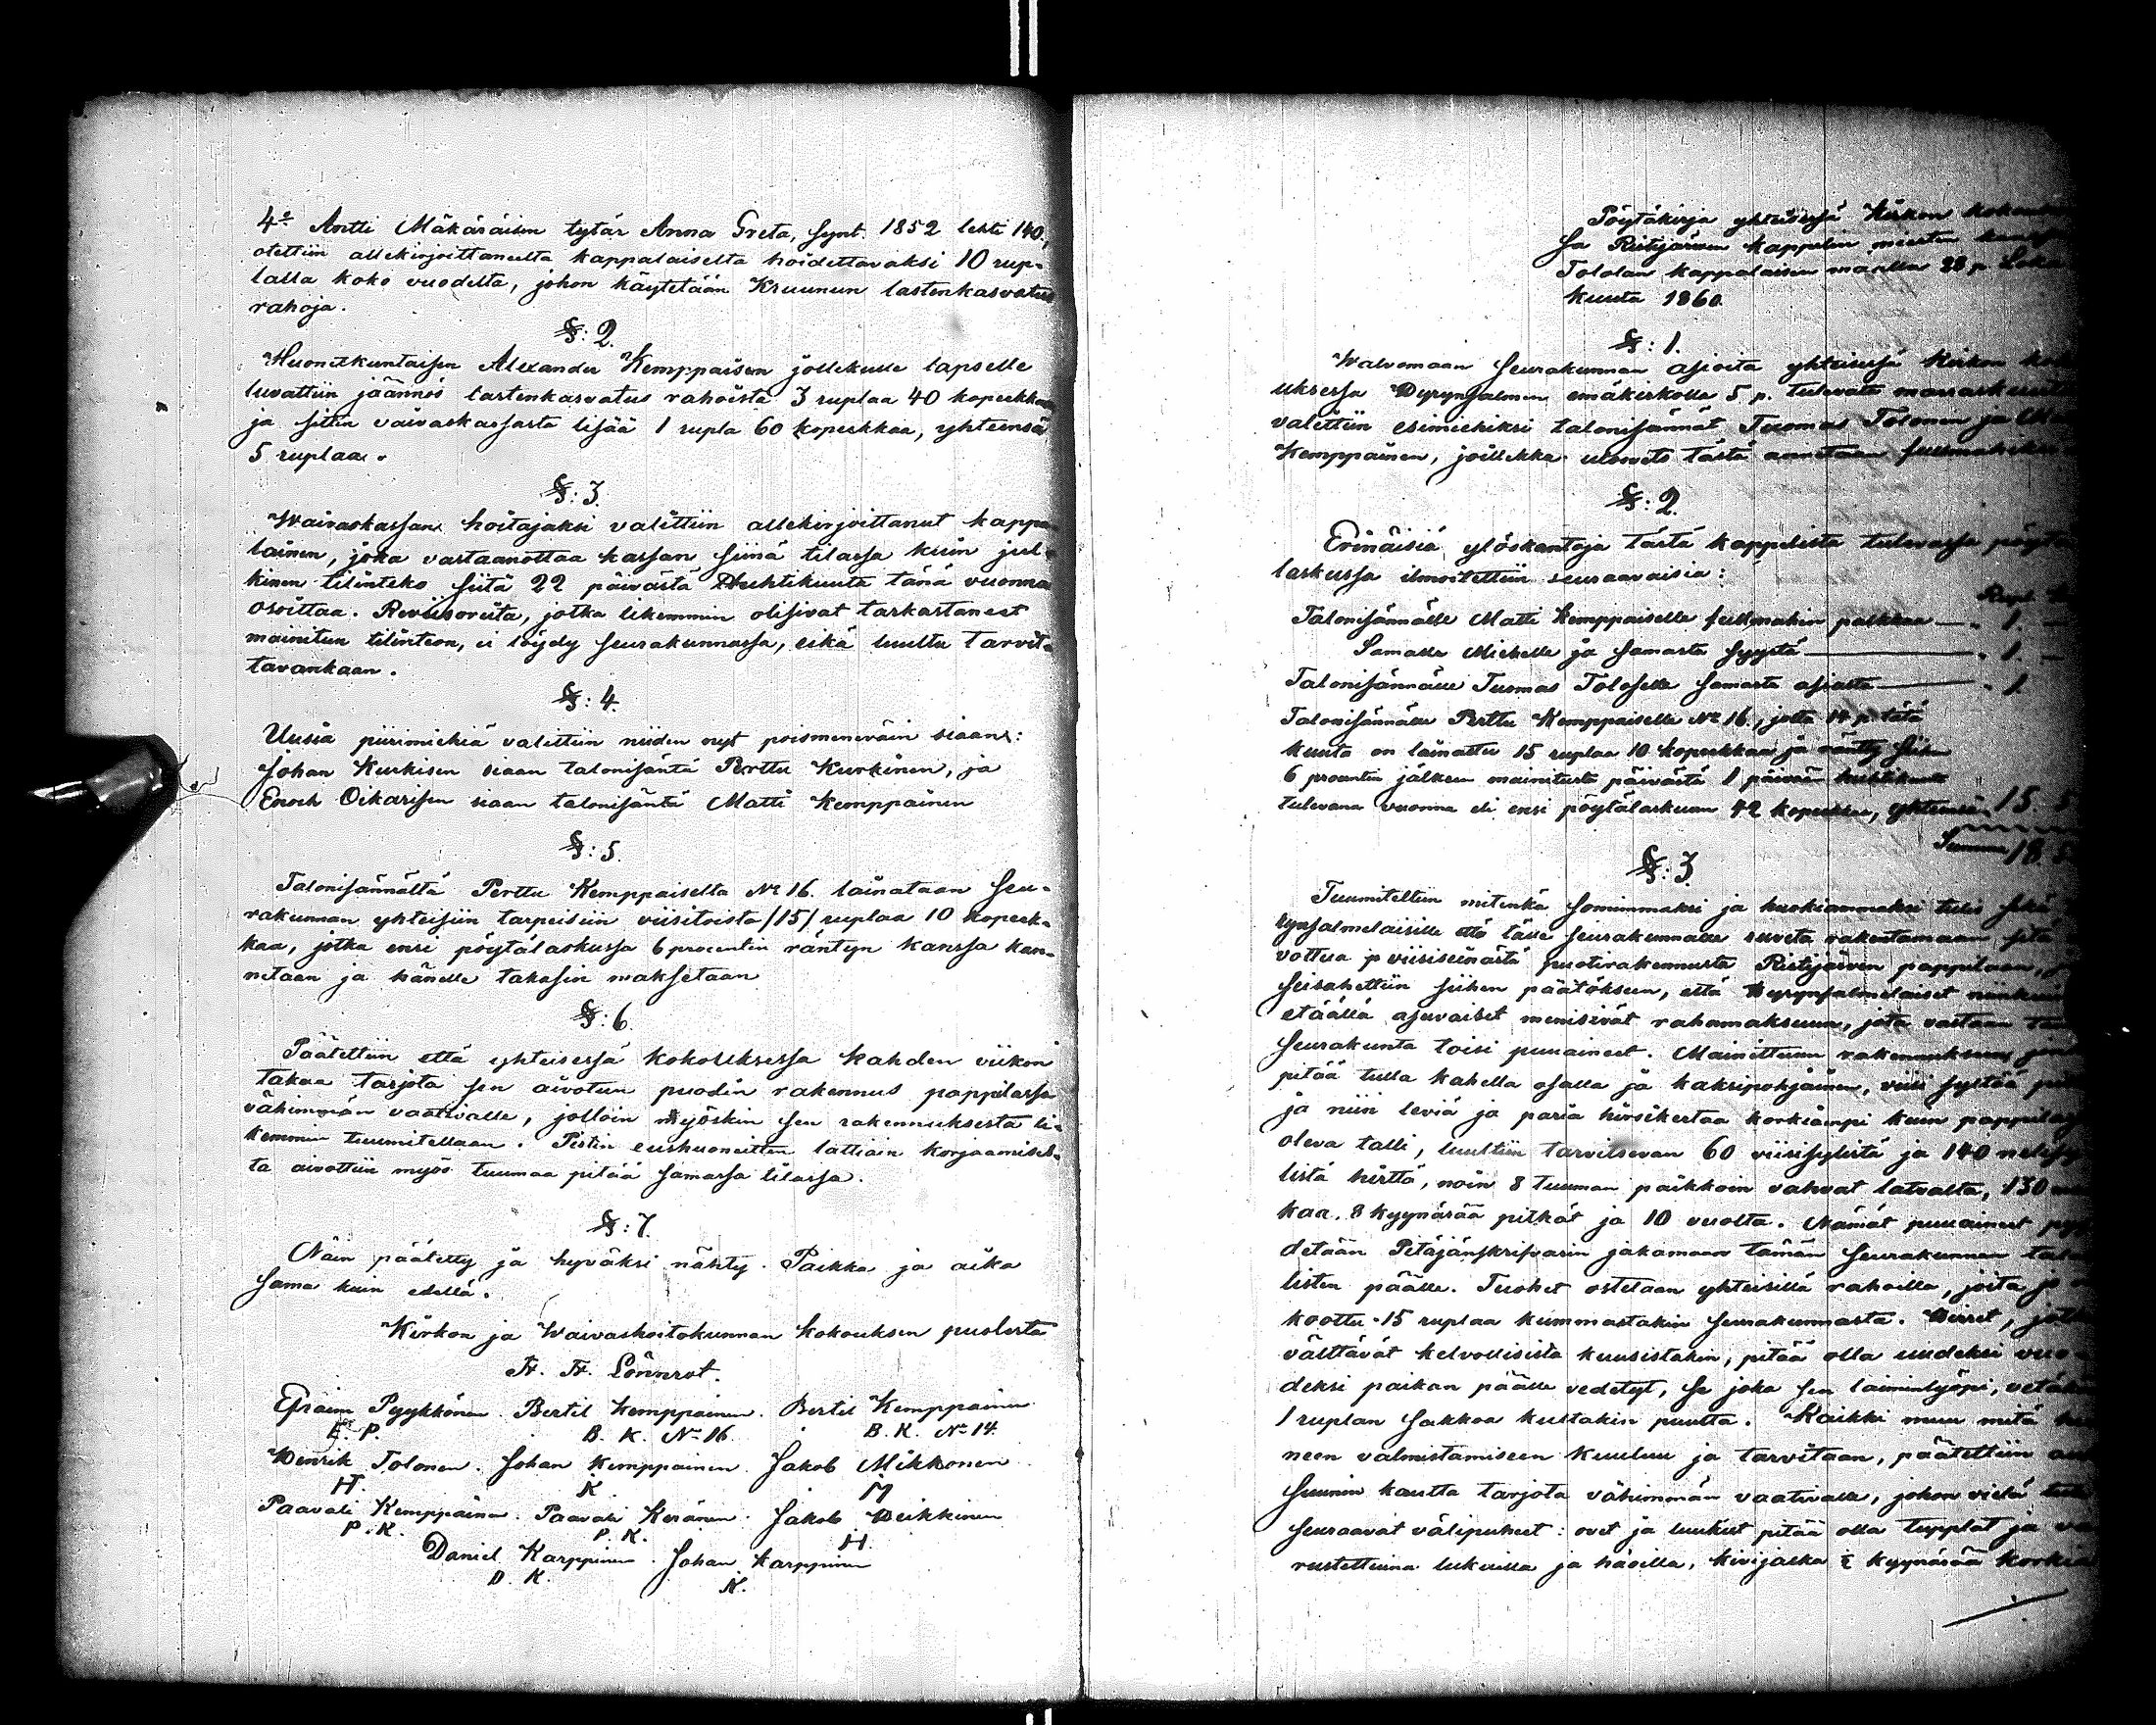 4:o Antti Mäkäräisen tytär Anna Greta, synt. 1852 lehti 140,
otettiin allekirjoittaneelta kappalaiselta hoidettavaksi 10 rup-
lalla koko vuodelta, johon käytetään Kruunun lastenkasvatus
rahoja.
§: 2.
Huonetkuntaisen Alexander Kemppaisen jollekulle lapselle
luvattiin jäännös lastenkasvatus rahoista 3 ruplaa 40 kopeekkaa
ja sitten vaivaskassasta lisää 1 rupla 60 kopeekkaa, yhteensä
5 ruplaa.
§: 3.
Waivaskassan hoitajaksi valittiin allekirjoittanut kappa-
lainen, joka vastaanottaa kassan siinä tilassa kuin jul-
kinen tilinteko siitä 22 päivästä Huhtikuuta tänä vuonna
osoittaa. Reviisoreita, jotka likemmin olisivat tarkastaneet
mainitun tilinteon, ei löydy seurakunnassa, eikä luultu tarvit-
tavankaan.
§: 4.
Uusia piirimiehiä valittiin niiden nyt poismeneväin siaan:
Johan Kurkisen siaan talonisäntä Perttu Kurkinen, ja
Enoch Oikarisen siaan talonisäntä Matti Kemppainen
§: 5.
Talonisännältä Perttu Kemppaiselta No 16. lainataan seu-
rakunnan yhteisiin tarpeisiin viisitoista /15/ ruplaa 10 kopeek-
kaa, jotka ensi pöytälaskussa 6 procentin räntyn kanssa kan-
netaan ja hänelle takasin maksetaan
§: 6.
Päätettiin että yhteisessä kokouksessa kahden viikon
takaa tarjota sen aivotun puodin rakennus pappilassa
vähimmän vaativalle, jolloin myöskin sen rakennuksesta li-
kemmin tuumitellaan. Pistin eushuoneitten lattiain korjaamises-
ta aivottiin myös tuumaa pitää samassa tilassa.
§: 7.
Näin päätetty ja hyväksi nähty. Paikka ja aika
sama kuin edellä.
Kirkon ja Waivashoitokunnan kokouksen puolesta
Lönnrot.
Efraim Pyykkönen. Bertil Kemppainen. Bertil Kemppainen
E. P. B. K. No 16. B. K. No 14.
Henrik Tolonen. Johan Kemppainen. Jakob Mikkonen
H. K. M
Paavali Kemppainen. Paavali Keränen. Jakob Heikkinen
P. K. P. K. H.
Daniel Karppinen. Johan Karppinen
D. K. K.
Pöytäkirja yhteisessä Kirkon
ja Ristijärven kappelin miesten
Tololan kappalaisen mäellä 28 p.
kuuta 1860
§: 1.
Walvomaan seurakunnan asioita yhteisessä Kirkon
uksessa Hyrynsalmen emäkirkolla 5 p. tulevata marraskuuta
valittiin esimiehiksi talonisännät Tuomas Tolonen ja
Kemppainen, joillekka uloveto tästä annetaan
§: 2.
Erinäisiä ylöskantoja tästä kappelista tulevassa
laskussa ilmoitettiin seuraavaisia:
Talonisännälle Matti Kemppaiselle fullmahin palkkaa — " 1. —
Samalle Miehelle ja samasta syystä — " 1. —
Talonisännälle Tuomas Toloselle samasta asiasta — " 1.
Talonisännälle Perttu Kemppaiselle No 16., jolta 14 p. tätä
kuuta on lainattu 15 ruplaa 10 kopeekkaa ja ränty siihen
6 procentin jälkeen mainitusta päivästä 1 päivään huhtikuuta
tulevana vuonna eli ensi pöytälaskuun 42 kopeekkaa, yhteensä 15. 5
Summa 18 5
§: 3.
Tuumiteltiin mitenkä somimmaksi ja huokiammaksi tulis
rynsalmelaisille että tälle seurakunnalle ruveta rakentamaan sitä
vottua p viisiseinästä puotirakennusta Ristijärven pappilaan,
seisahettiin siihen päätökseen, että Hyrynsalmelaiset niinkuin
etäällä asuvaiset menisivät rahamaksuun, jota vastaan
seurakunta toisi puuaineet. Mainittuun rakennukseen
pitää tulla kahella osalla ja kaksipohjainen, viisi syltää
ja niin leviä ja paria hirsikertaa korkiampi kuin
oleva talli, luultiin tarvitsevan 60 viisisylistä ja 140
listä hirttä, noin 8 tuuman paikkoin vahvat latvalta, 130
kaa. 8 kyynärää pitkät ja 10 vuolta. Nämät puuaineet
detään Pitäjänskrifvarin jakamaan tämän seurakunnan
listen päälle. Tuohet ostetaan yhteisillä rahoilla, joita
koottu 15 ruplaa kummastakin seurakunnasta. Hirret,
välttävät kelvollisista kuusistakin, pitää olla uudeksi vuo-
deksi paikan päälle vedetyt, se joka sen laiminlyöpi, vetäköön
1 ruplan sakkoa kustakin puulta. Kaikki muu mitä
neen valmistamiseen kuuluu ja tarvitaan, päätettiin
suunin kautta tarjota vähimmän vaativalle, johon vielä
seuraavat välipuheet: ovet ja luukut pitää olla tupplat ja
rustettuina lukuilla ja haoilla, kivijalka ½ kyynärää korkia